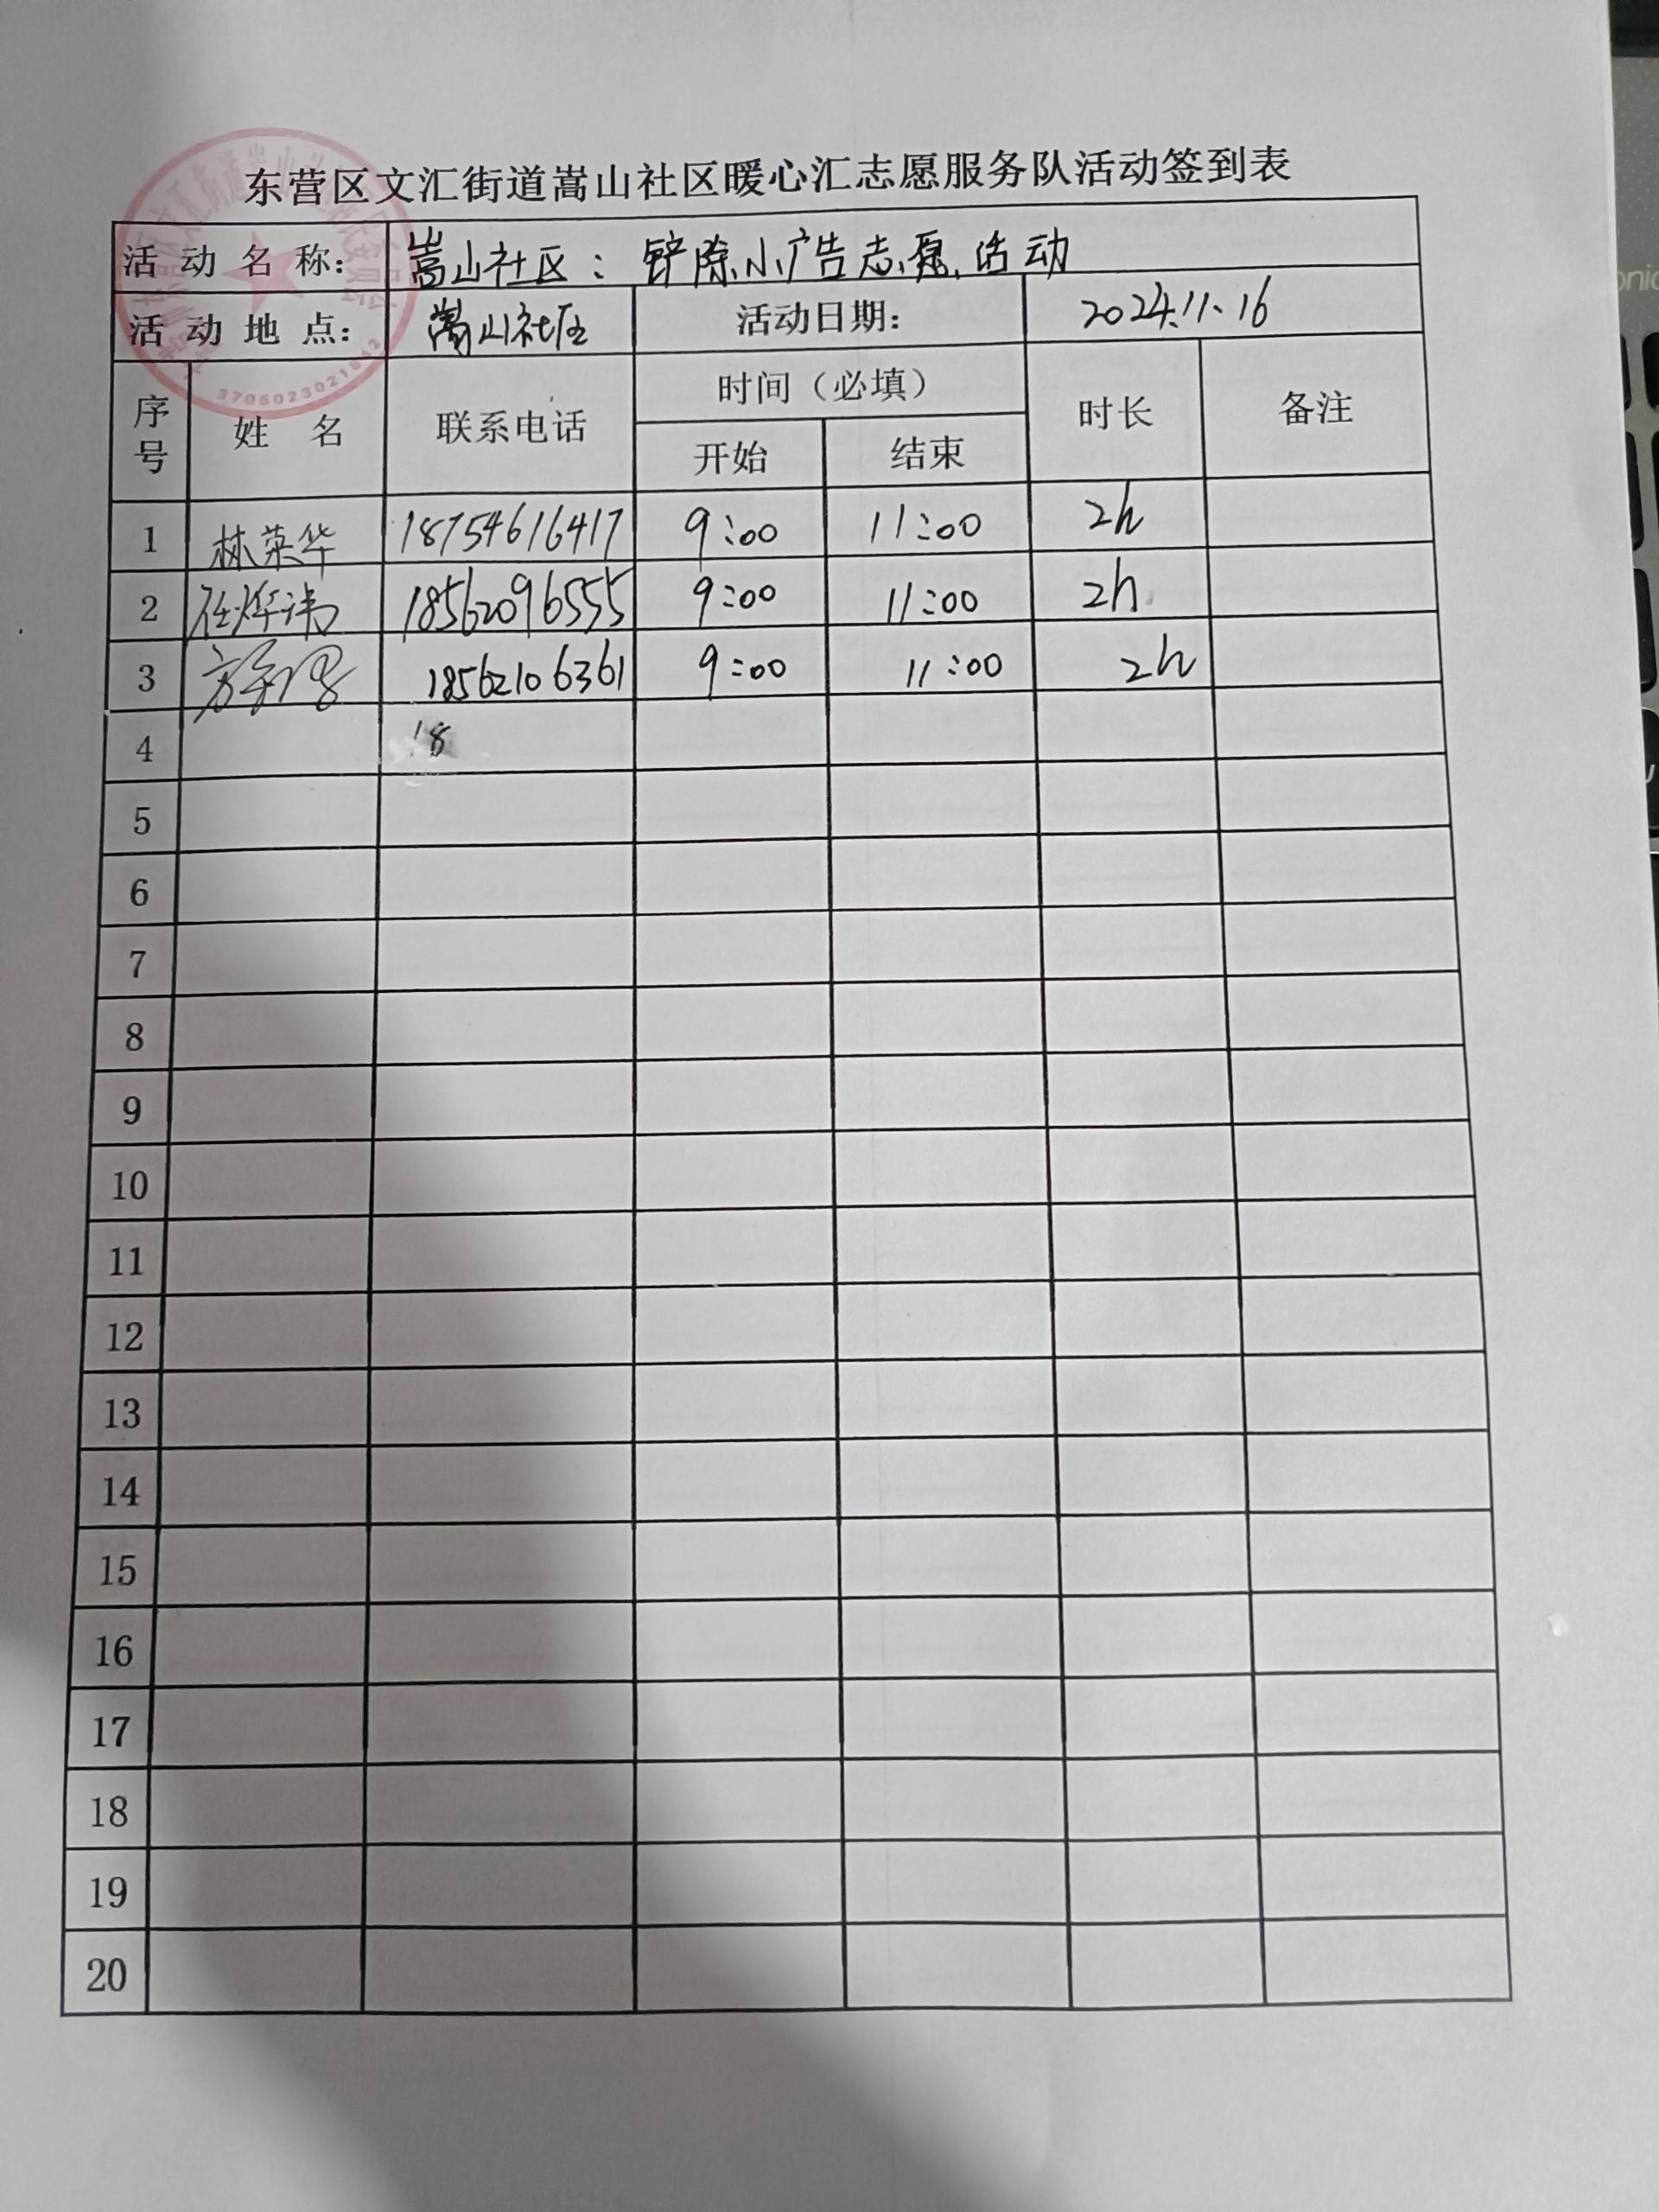 东营区文汇街道嵩山社区暖心汇志愿服务队活动签到表
活动名称： 嵩山社区：铲除小广告志愿活动
活动地点： 嵩山社区 活动日期： 2024.11.16
序号 姓名 联系电话 时间（必填） 时长 备注
开始 结束
1 林英华 18754616417 9:00 11:00 2h
2 任烨玮 18562096555 9:00 11:00 2h
3 18562106361 9:00 11:00 2h
4 18
5
6
7
8
9
10
11
12
13
14
15
16
17
18
19
20